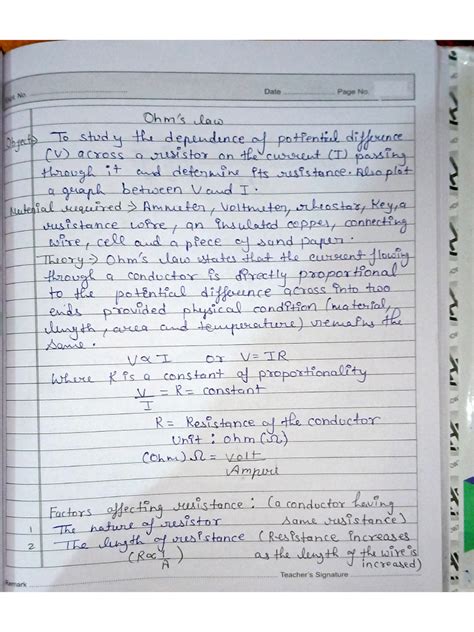 No.
Date
Page No.
Ohm's law
Object → To study the dependence of potiential difference
(V) across a resistor on the current (I) passing
through it and determine its resistance. Also plot
a graph between V and I.
Material required → Ammeter, Voltmeter, rheostat, Key, a
resistance wire, an insulated copper, connecting
wire, cell and a piece of sand paper.
Theory → Ohm's law states that the current flowing
through a conductor is directly proportional
to the potential difference across into two
ends provided physical condition (material,
length, area and temperature) remains the
same.
V∝I or V=IR
Where K is a constant of proportionality
V/I = R = constant
R = Resistance of the conductor
Unit : ohm (Ω)
(Ohm) Ω = Volt/Ampere
Factors affecting resistance : (a conductor having
1 The nature of resistor same resistance)
2 The length of resistance (Resistance increases
(R∝1/A) as the length of the wire is
increased)
Remark
Teacher's Signature